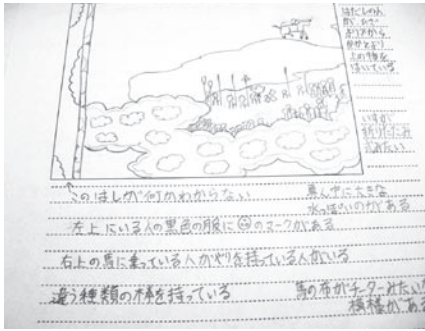 はだしの人
が
よりかかと
上の物を
はいている
いすが
折りたたみ
式みたい
このはしが何かわからない
真ん中に大きな
水っぽいのがある
左上にいる人の黒色の服に☹のマークがある
右上の馬に乗っている人がやりを持っている人がいる
違う種類の棒を持っている
馬の布がチーターみたいな
模様がある